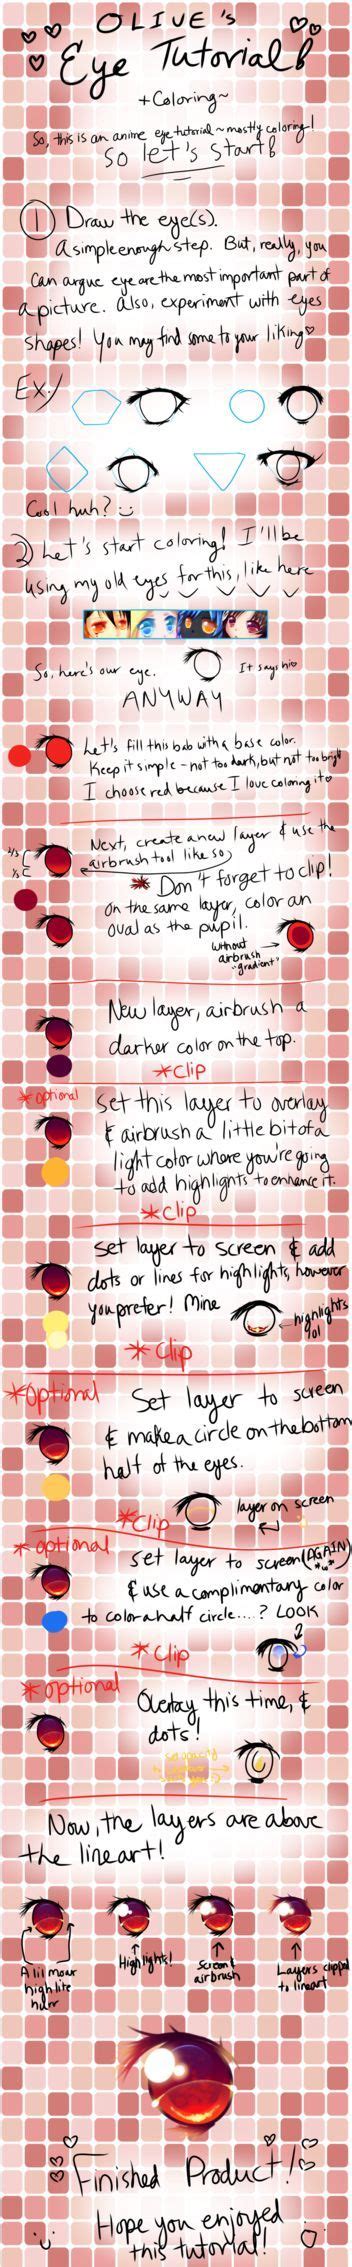 OLIVE's
Eye Tutorial!
+Coloring~
So, this is an anime eye tutorial~mostly coloring!
So let's start!
① Draw the eye(s).
A simple enough step. But, really, you
can argue eye are the most important part of
a picture. Also, experiment with eyes
shapes! You may find some to your liking♥
Ex./
Cool huh? :)
2) Let's start coloring! I'll be
using my old eyes for this, like here
So, here's our eye.
It says hi♥
ANYWAY
Let's fill this bab with a base color.
Keep it simple - not too dark, but not too bright
I choose red because I love coloring it♥
2/3
1/3
Next, create a new layer & use the
airbrush tool like so
* Don't forget to clip!
On the same layer, color an
oval as the pupil.
without
airbrush
"gradient"
New layer, airbrush a
darker color on the top.
*Clip
*optional
Set this layer to overlay
& airbrush a little bit of a
light color where you're going
to add highlights to enhance it.
*Clip
Set layer to screen & add
dots or lines for highlights, however
you prefer! Mine
highlights
lol
*Clip
*Optional
Set layer to screen
& make a circle on the bottom
half of the eyes.
*Clip
layer on screen
*optional
Set layer to screen (AGAIN)
& use a complimentary color
to color a half circle....? LOOK
*Clip
*optional
Overlay this time, &
dots!
set opacity
Now, the layers are above
the lineart!
A lil moar
highlite
hurr
Highlights!
Screen &
airbrush
Layers clipped
to lineart
Finished Product!
Hope you enjoyed
this tutorial!